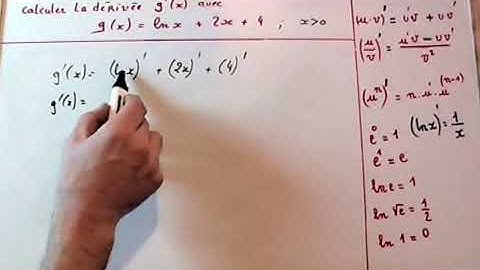 Calculer la dérivée g'(x) avec
g(x) = ln x + 2x + 4 ; x>0
g'(x) = (ln x)' + (2x)' + (4)'
g'(x) =
(u·v)' = u'v + uv'
(u/v)' = (u'v - uv')/v²
(uⁿ)' = n·u'·u⁽ⁿ⁻¹⁾
e⁰ = 1 (ln x)' = 1/x
e¹ = e
ln e = 1
ln √e = 1/2
ln 1 = 0